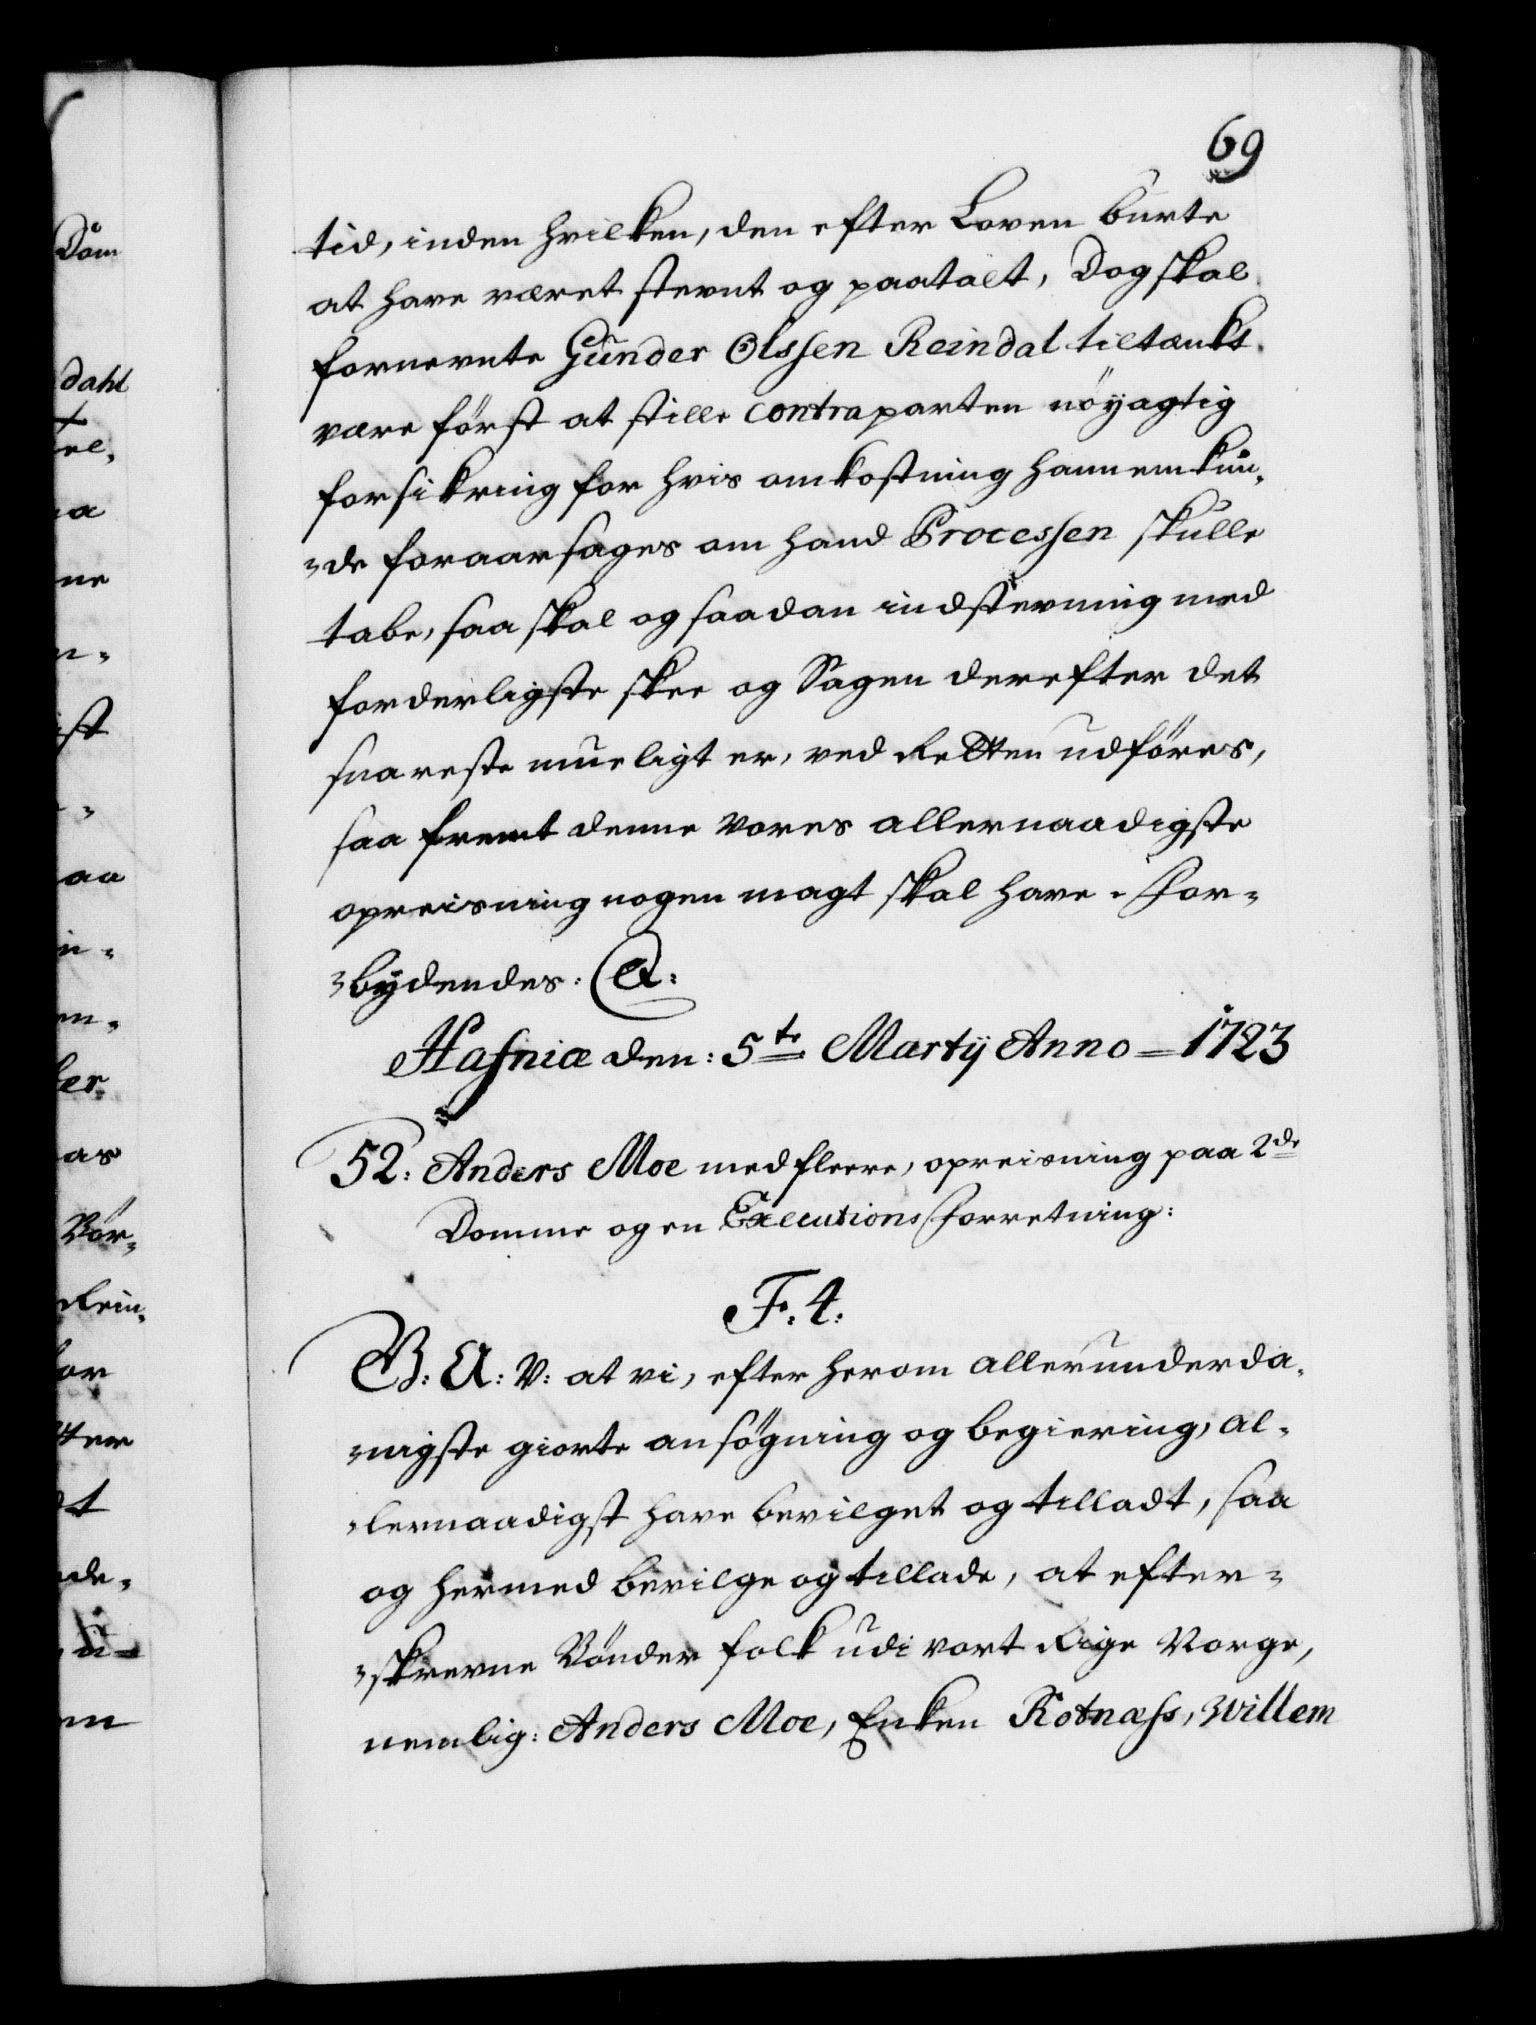 69
tid, inden hvilken, den efter Loven burte
at have været stevnt og paatalt, Dog skal
fornevnte Gunder Olssen Reindal tiltænkt
være først at stille contraparten nöyagtig
forsikring for hvis omkostning hannem kun-
-de foraarsages om hand Processen skulle
tabe, saa skal og saadan indstevning med
forderligste skee og Sagen derefter det
snareste mueligt er, ved Retten udføres,
saa fremt denne vores allernaadigste
opreisning nogen magt skal have. For-
-bydendes: &:
Hafniæ den: 5te Martij Anno = 1723
52: Anders Moe med fleere, opreisning paa 2de
Domme og en Executions Forretning:
F. 4.
G: A: V: at vi, efter herom allerunderda-
-nigste giorte ansøgning og begiering, al-
-lernaadigst have bevilget og tilladt, saa
og hermed bevilge og tillade, at efter-
-skrevne Bønder folk udi vort Rige Norge,
nemlig: Anders Moe, Enken Rotnæss, Willem
Döm
dahl
el.
a
ne
n-
st
aa
in-
en-
ler
as
Bör-
Rein-
for
tter
dt
de-
u-
en